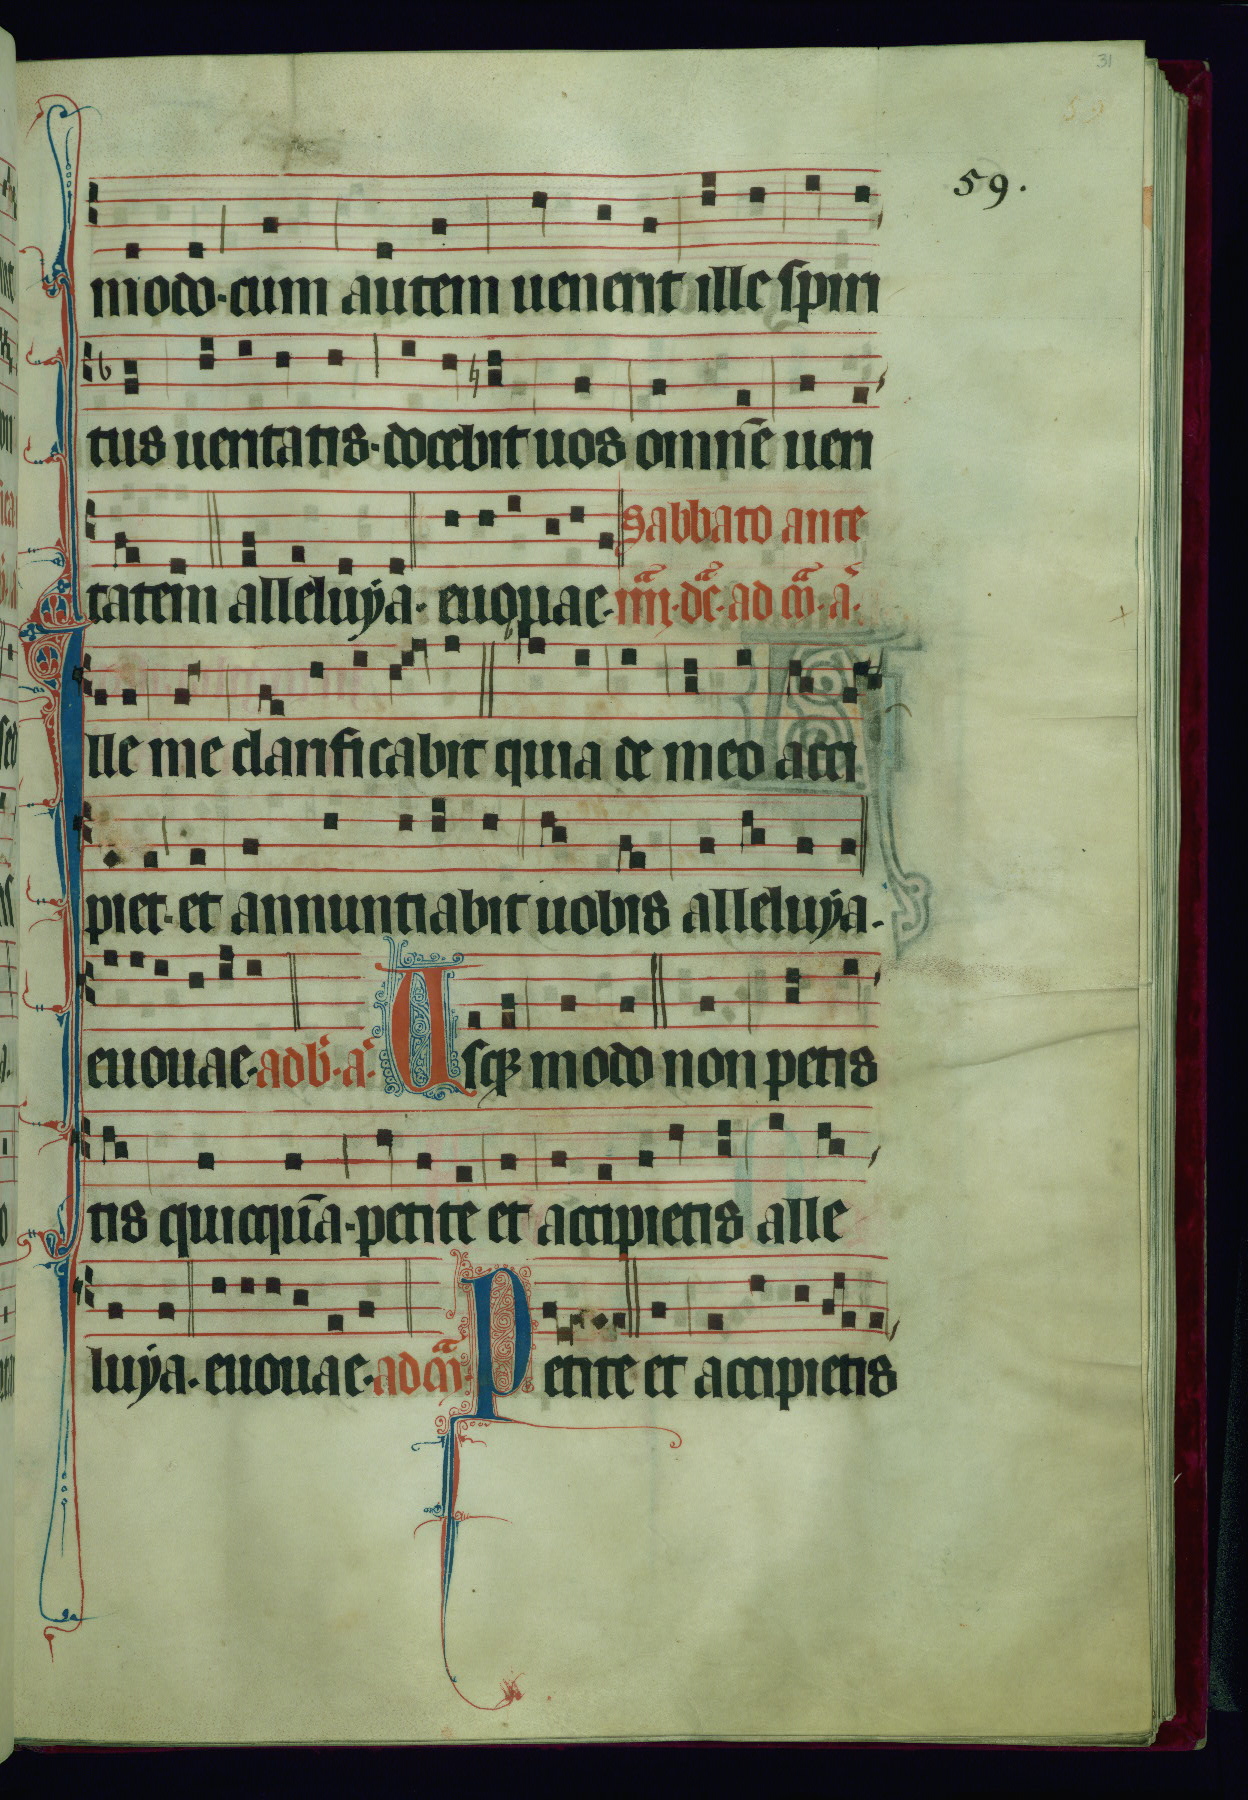 31
59
59.
modo·cum autem uenerit ille spiri
tus ueritatis·docebit uos omnē ueri
tatem alleluẏa· euouae· Sabbato ante
iiiiᵃ·dc̄ᵃ·ad m̄ᵃ·a᷎·
lle me clarificabit quia de meo acci
piet·et annuntiabit uobis alleluẏa·
euouae·ad b᷎·a᷎· Usqꝫ modo non petis
tis quicquā·petite et accipietis alle
luẏa·euouae·ad m̄ᵃ· Petite et accipietis